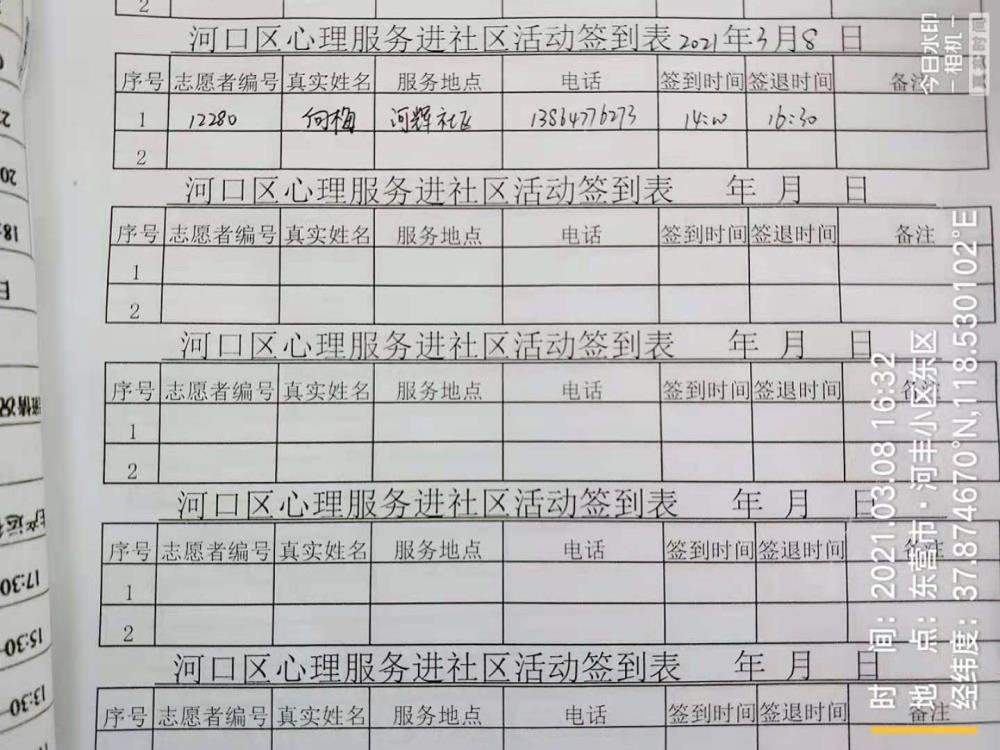 2
河口区心理服务进社区活动签到表 2021年3月8日
序号 志愿者编号 真实姓名 服务地点 电话 签到时间 签退时间 备注
1 12280 向梅 河辉社区 13864776273 14:00 16:30
2
河口区心理服务进社区活动签到表 年 月 日
序号 志愿者编号 真实姓名 服务地点 电话 签到时间 签退时间 备注
1
2
河口区心理服务进社区活动签到表 年 月 日
序号 志愿者编号 真实姓名 服务地点 电话 签到时间 签退时间 备注
1
2
河口区心理服务进社区活动签到表 年 月 日
序号 志愿者编号 真实姓名 服务地点 电话 签到时间 签退时间 备注
1
2
河口区心理服务进社区活动签到表 年 月 日
序号 志愿者编号 真实姓名 服务地点 电话 签到时间 签退时间 备注
今日水印
相机
真实时间
时 间：2021.03.08 16:32
地 点：东营市·河丰小区东区
经纬度：37.874670°N,118.530102°E
17:30
15:30
13:30